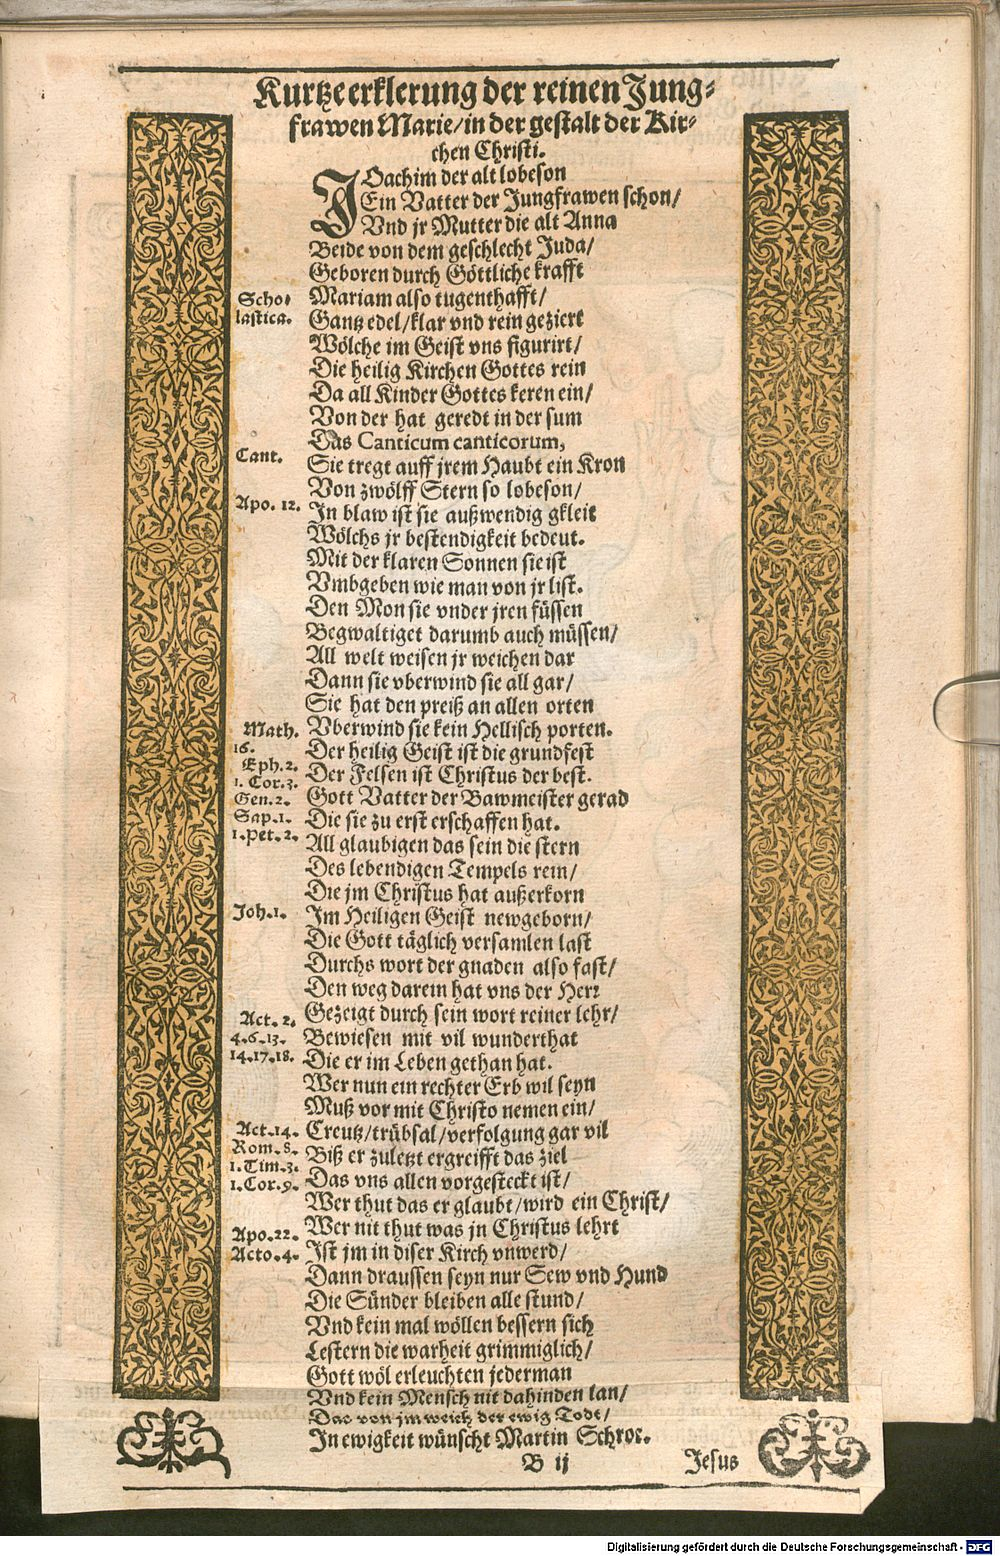 Kurtze erklerung der reinen Jung-
frawen Marie/in der gestalt der Kir-
chen Christi.
JOachim der alt lobeson
Ein Vatter der Jungfrawen schon/
Vnd jr Mutter die alt Anna
Beide von dem geschlecht Juda/
Geboren durch Göttliche krafft
Scho-
lastica.
Mariam also tugenthafft/
Gantz edel/klar vnd rein geziert
Wölche im Geist vns figurirt/
Die heilig Kirchen Gottes rein
Da all Kinder Gottes keren ein/
Von der hat geredt in der sum
Das Canticum canticorum,
Cant.
Sie tregt auff jrem Haubt ein Kron
Von zwölff Stern so lobeson/
Apo. 12.
In blaw ist sie außwendig gkleit
Wölchs jr bestendigkeit bedeut.
Mit der klaren Sonnen sie ist
Vmbgeben wie man von jr list.
Den Mon sie vnder jren füssen
Begwaltiget darumb auch müssen/
All welt weisen jr weichen dar
Dann sie vberwind sie all gar/
Sie hat den preiß an allen orten
Math.
16.
Vberwind sie kein Hellisch porten.
Der heilig Geist ist die grundfest
Eph. 2.
1. Cor. 3.
Der Felsen ist Christus der best.
Gen. 2.
Gott Vatter der Bawmeister gerad
Sap. 1.
Die sie zu erst erschaffen hat.
1. Pet. 2.
All glaubigen das sein die stern
Des lebendigen Tempels rein/
Die jm Christus hat außerkorn
Joh. 1.
Im Heiligen Geist newgeborn/
Die Gott täglich versamlen last
Durchs wort der gnaden also fast/
Den weg darein hat vns der Herr
Act. 2.
4. 6. 13.
14. 17. 18.
Gezeigt durch sein wort reiner lehr/
Bewiesen mit vil wunderthat
Die er im Leben gethan hat.
Wer nun ein rechter Erb wil seyn
Muß vor mit Christo nemen ein/
Act. 14.
Creutz/trübsal/verfolgung gar vil
Rom. 8.
Biß er zuletzt ergreifft das ziel
1. Tim. 3.
1. Cor. 9.
Das vns allen vorgesteckt ist/
Wer thut das er glaubt/wird ein Christ/
Apo. 22.
Wer nit thut was jn Christus lehrt
Acto. 4.
Ist jm in diser Kirch vnwerd/
Dann draussen seyn nur Sew vnd Hund
Die Sünder bleiben alle stund/
Vnd kein mal wöllen bessern sich
Lestern die warheit grimmiglich/
Gott wöl erleuchten jederman
Vnd kein Mensch nit dahinden lan/
Das von jm weich der ewig Todt/
In ewigkeit wünscht Martin Schrot.
B ij
Jesus
Digitalisierung gefördert durch die Deutsche Forschungsgemeinschaft - DFG